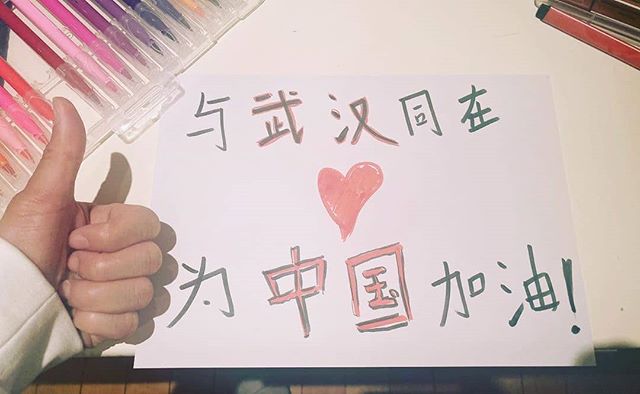 与武汉同在
为中国加油!